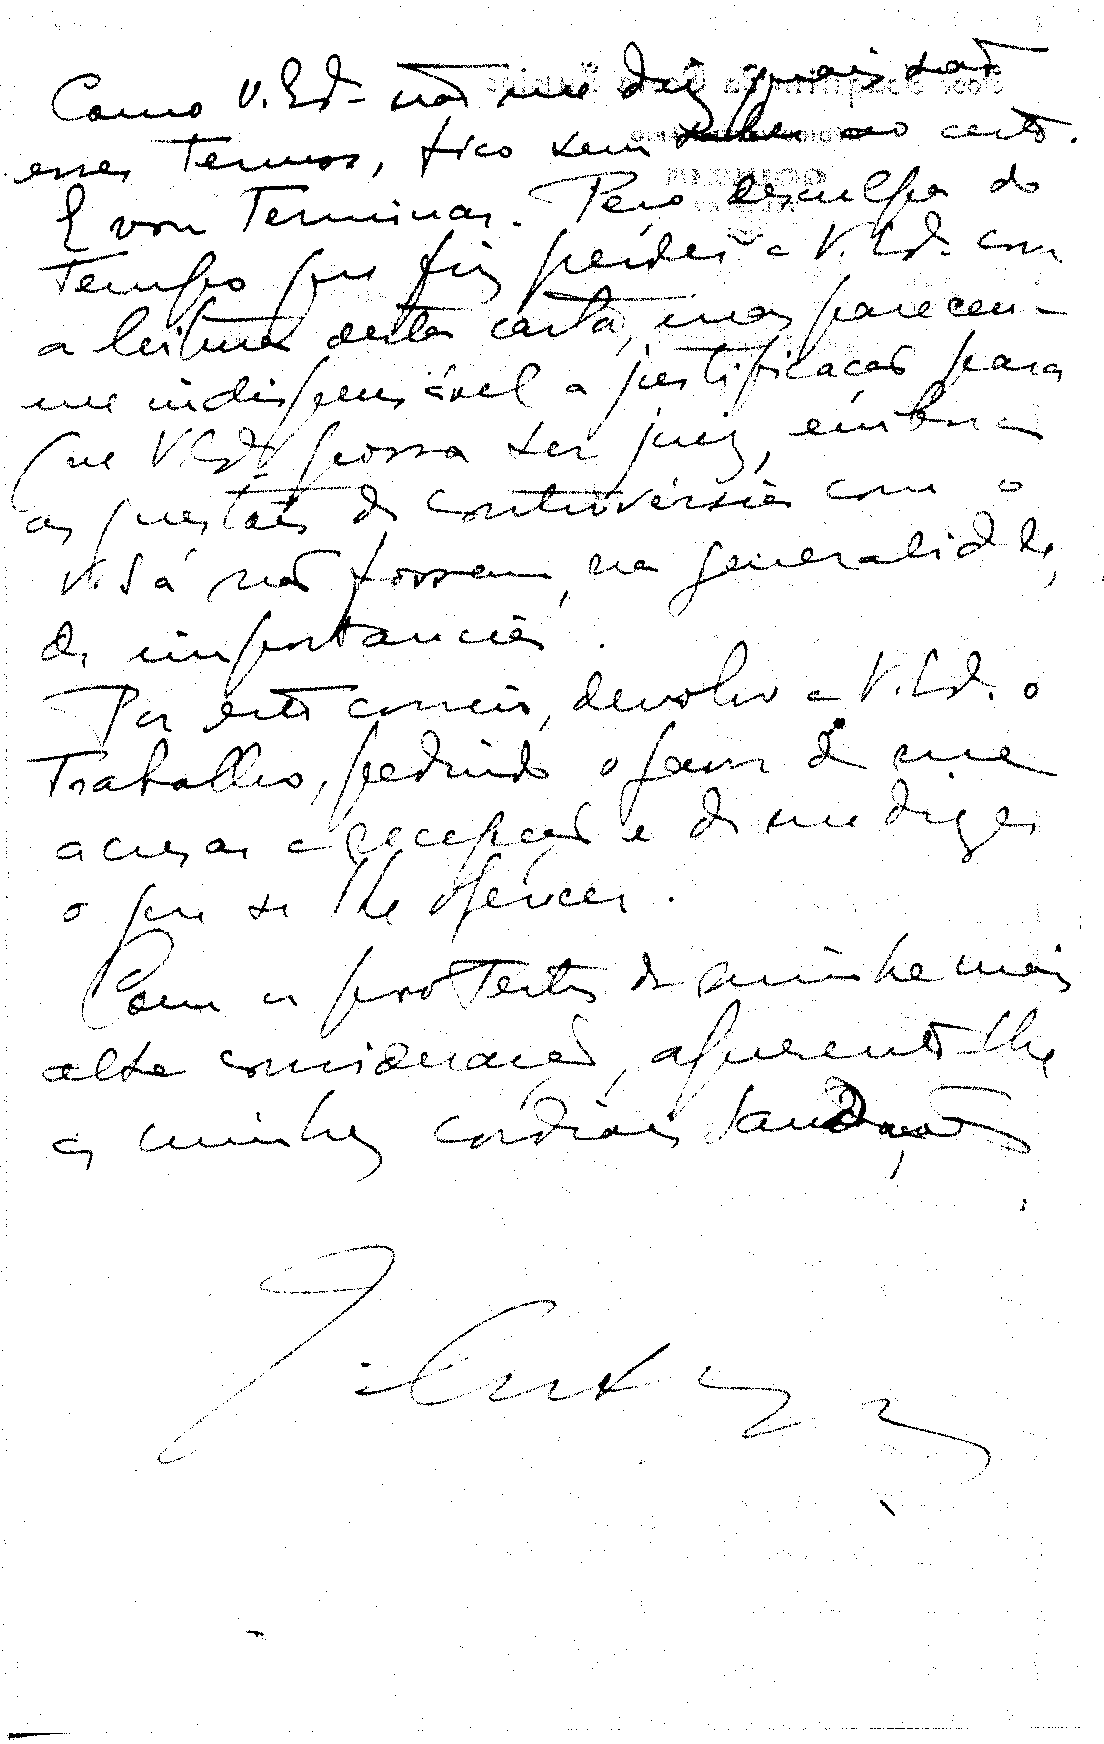 Como V. Exª não me diz quais são
esses termos, fico sem saber ao certo.
E vou terminar. Peço desculpa do
tempo que fiz perder a V. Exª com
a leitura desta carta, mas pareceu-
me indispensável a justificação para
que V. Exª possa ser juiz, embora
as questões de controvérsia com o
V. Sá não fossem, na generalidade,
de importancia.
Por este correio, devolvo a V. Exª o
trabalho, pedindo o favor de me
acusar a recepção e de me dizer
o que se lhe oferecer.
Com os protestos da minha mais
alta consideração, apresento-lhe
as minhas cordiais saudações